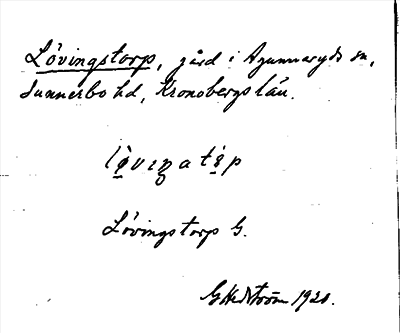 Lövingstorp, gård i Agunnaryds sn,
Sunnerbo hd, Kronobergs län.
Lövingstorp G.
G Hedström 1920.